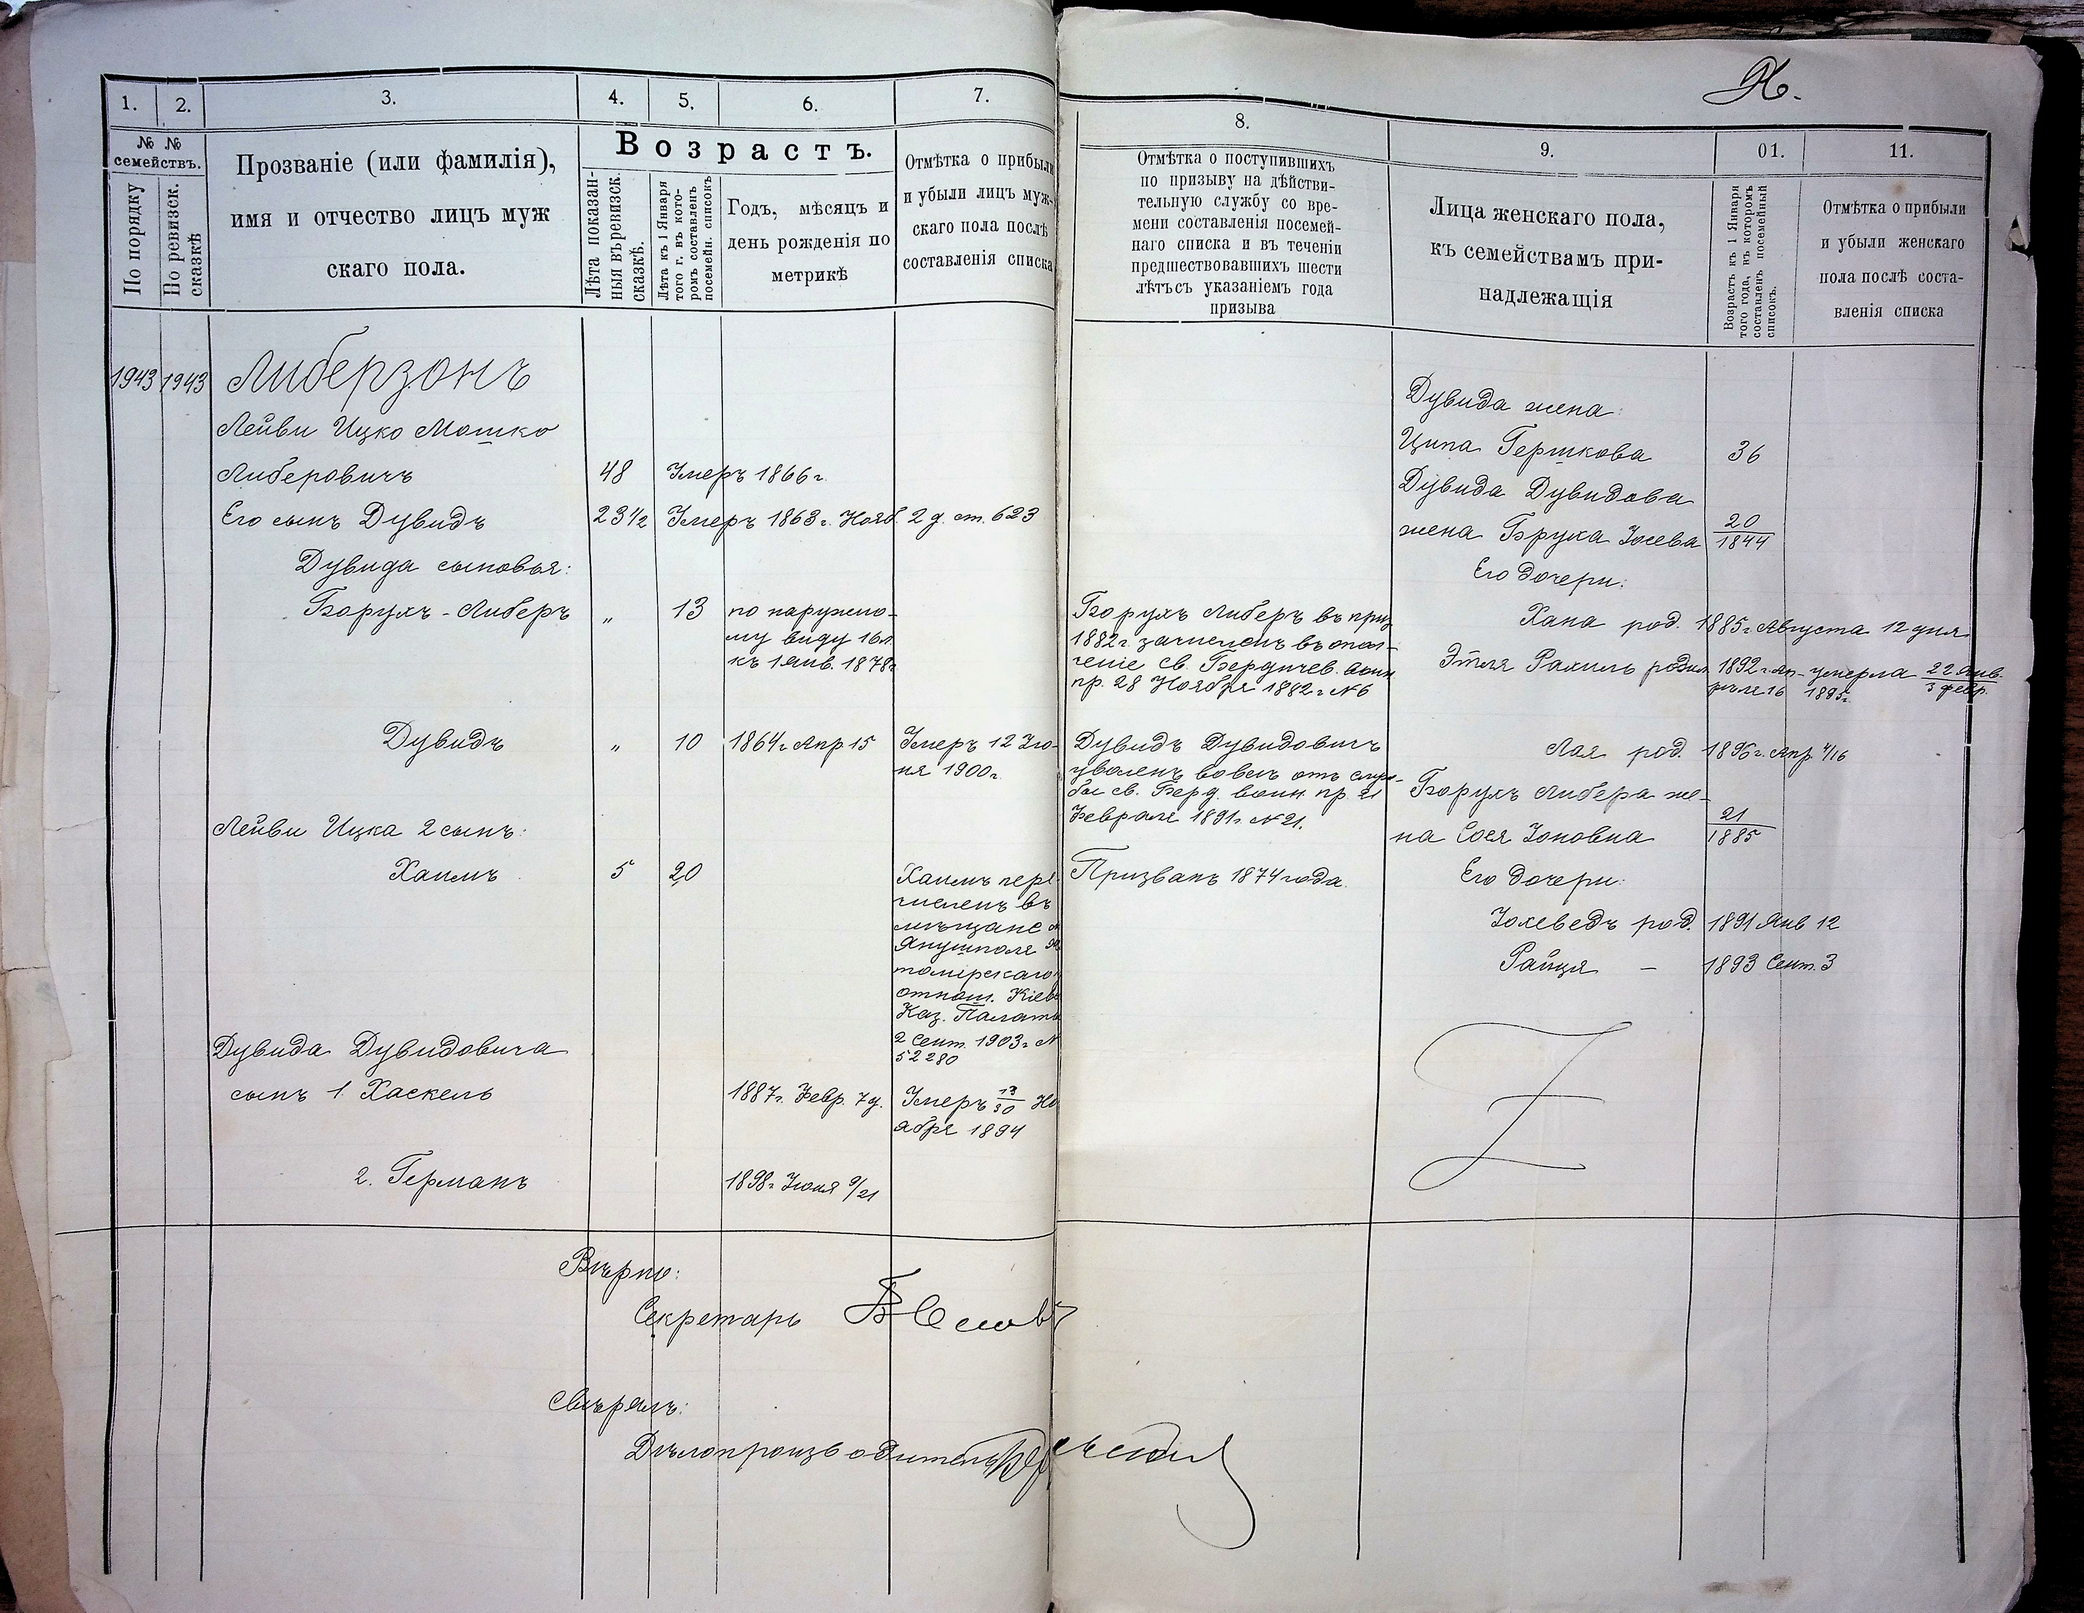 1. 2. 3. 4. 5. 6. 7.
№ № семействъ.
По порядку
По ревизск. сказкѣ
Прозваніе (или фамилія),
имя и отчество лицъ муж
скаго пола.
Возрастъ.
Лѣта показан-
ныя въ ревизск.
сказкѣ.
Лѣта къ 1 Января
того г. въ кото-
ромъ составленъ
посемейн. списокъ
Годъ, мѣсяцъ и
день рожденія по
метрикѣ
Отмѣтка о прибыли
и убыли лицъ муж-
скаго пола послѣ
составленія списка
1943 1943 Либерзонъ
Лейви Ицко Мошко
Либеровичъ 48 Умеръ 1866 г.
Его сынъ Дувидъ 23 1/2 Умеръ 1863 г. Нояб. 2 д. ст. 623
Дувида сыновья:
Борухъ-Либеръ „ 13 по наружно-
му виду 16 л
къ 1 Янв. 1878 г
Дувидъ „ 10 1864 г Апр 15 Умеръ 12 Iю-
ня 1900 г.
Лейви Ицка 2 сынъ:
Хаимъ 5 20 Хаимъ пере
численъ въ
мѣщане
Янушполя
томiрскаго
отнош. Кiев
Каз. Палаты
2 Сент. 1903 г №
52280
Дувида Дувидовича
сынъ 1 Хаскель 1887 г. Февр. 7 д. Умеръ 13/30 Но
ября 1894
2. Германъ 1898 г Iюля 9/21
Вѣрно:
Секретарь
Свѣрялъ:
Дѣлопроизводитель
8. 9. 01. 11.
Отмѣтка о поступившихъ
по призыву на дѣйстви-
тельную службу со вре-
мени составленія посемей-
наго списка и въ теченіи
предшествовавшихъ шести
лѣтъ съ указаніемъ года
призыва
Лица женскаго пола,
къ семействамъ при-
надлежащія
Возрастъ къ 1 Января
того года, въ которомъ
составленъ посемейный
списокъ.
Отмѣтка о прибыли
и убыли женскаго
пола послѣ соста-
вленія списка
Дувида жена:
Ципа Гершкова 36
Дувида Дувидова
жена Брука Iосева 20/1844
Его дочери:
Борухъ Либеръ въ приз
1882 г. зачисленъ въ опол-
ченіе св. Бердичев. воин
пр. 28 Ноября 1882 г № 6
Хана род. 1885 г. Августа 12 дня
Этля Рахиль родил 1892 г. Ап- умерла 22 Янв.
рѣля 16 1895 г. 3 февр.
Дувидъ Дувидовичъ
уволенъ вовсе отъ служ-
бы св. Берд. воин. пр. 21
Февраля 1891 г. № 21.
Лая род. 1896 г. Апр 4/16
Борухъ Либера же-
на Сося Iоновна 21/1885
Призванъ 1874 года.
Его дочери:
Iохеведъ род. 1891 Янв 12
Райця — 1893 Сент. 3